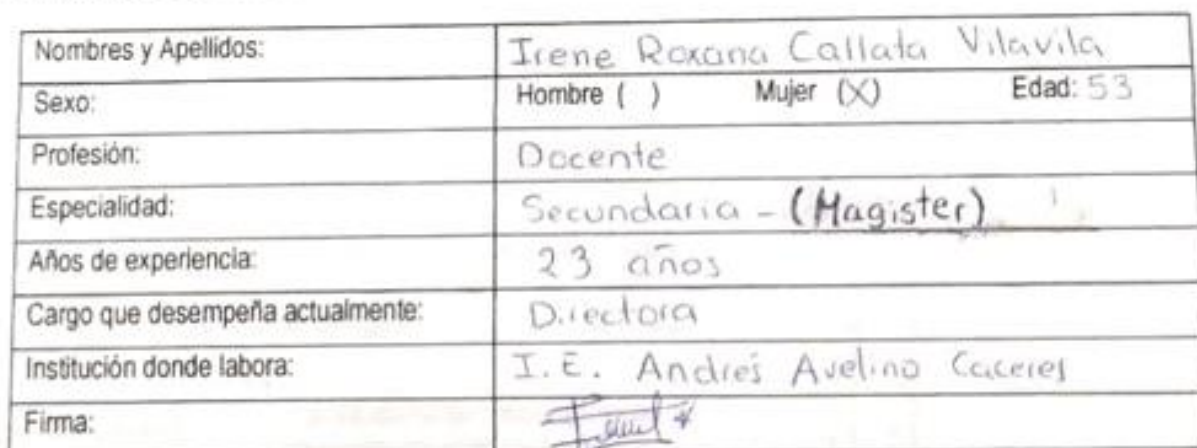 Nombres y Apellidos: Irene Roxana Callata Vilavila
Sexo: Hombre ( ) Mujer (X) Edad: 53
Profesión: Docente
Especialidad: Secundaria - (Magister)
Años de experiencia: 23 años
Cargo que desempeña actualmente: Directora
Institución donde labora: I.E. Andrés Avelino Caceres
Firma: